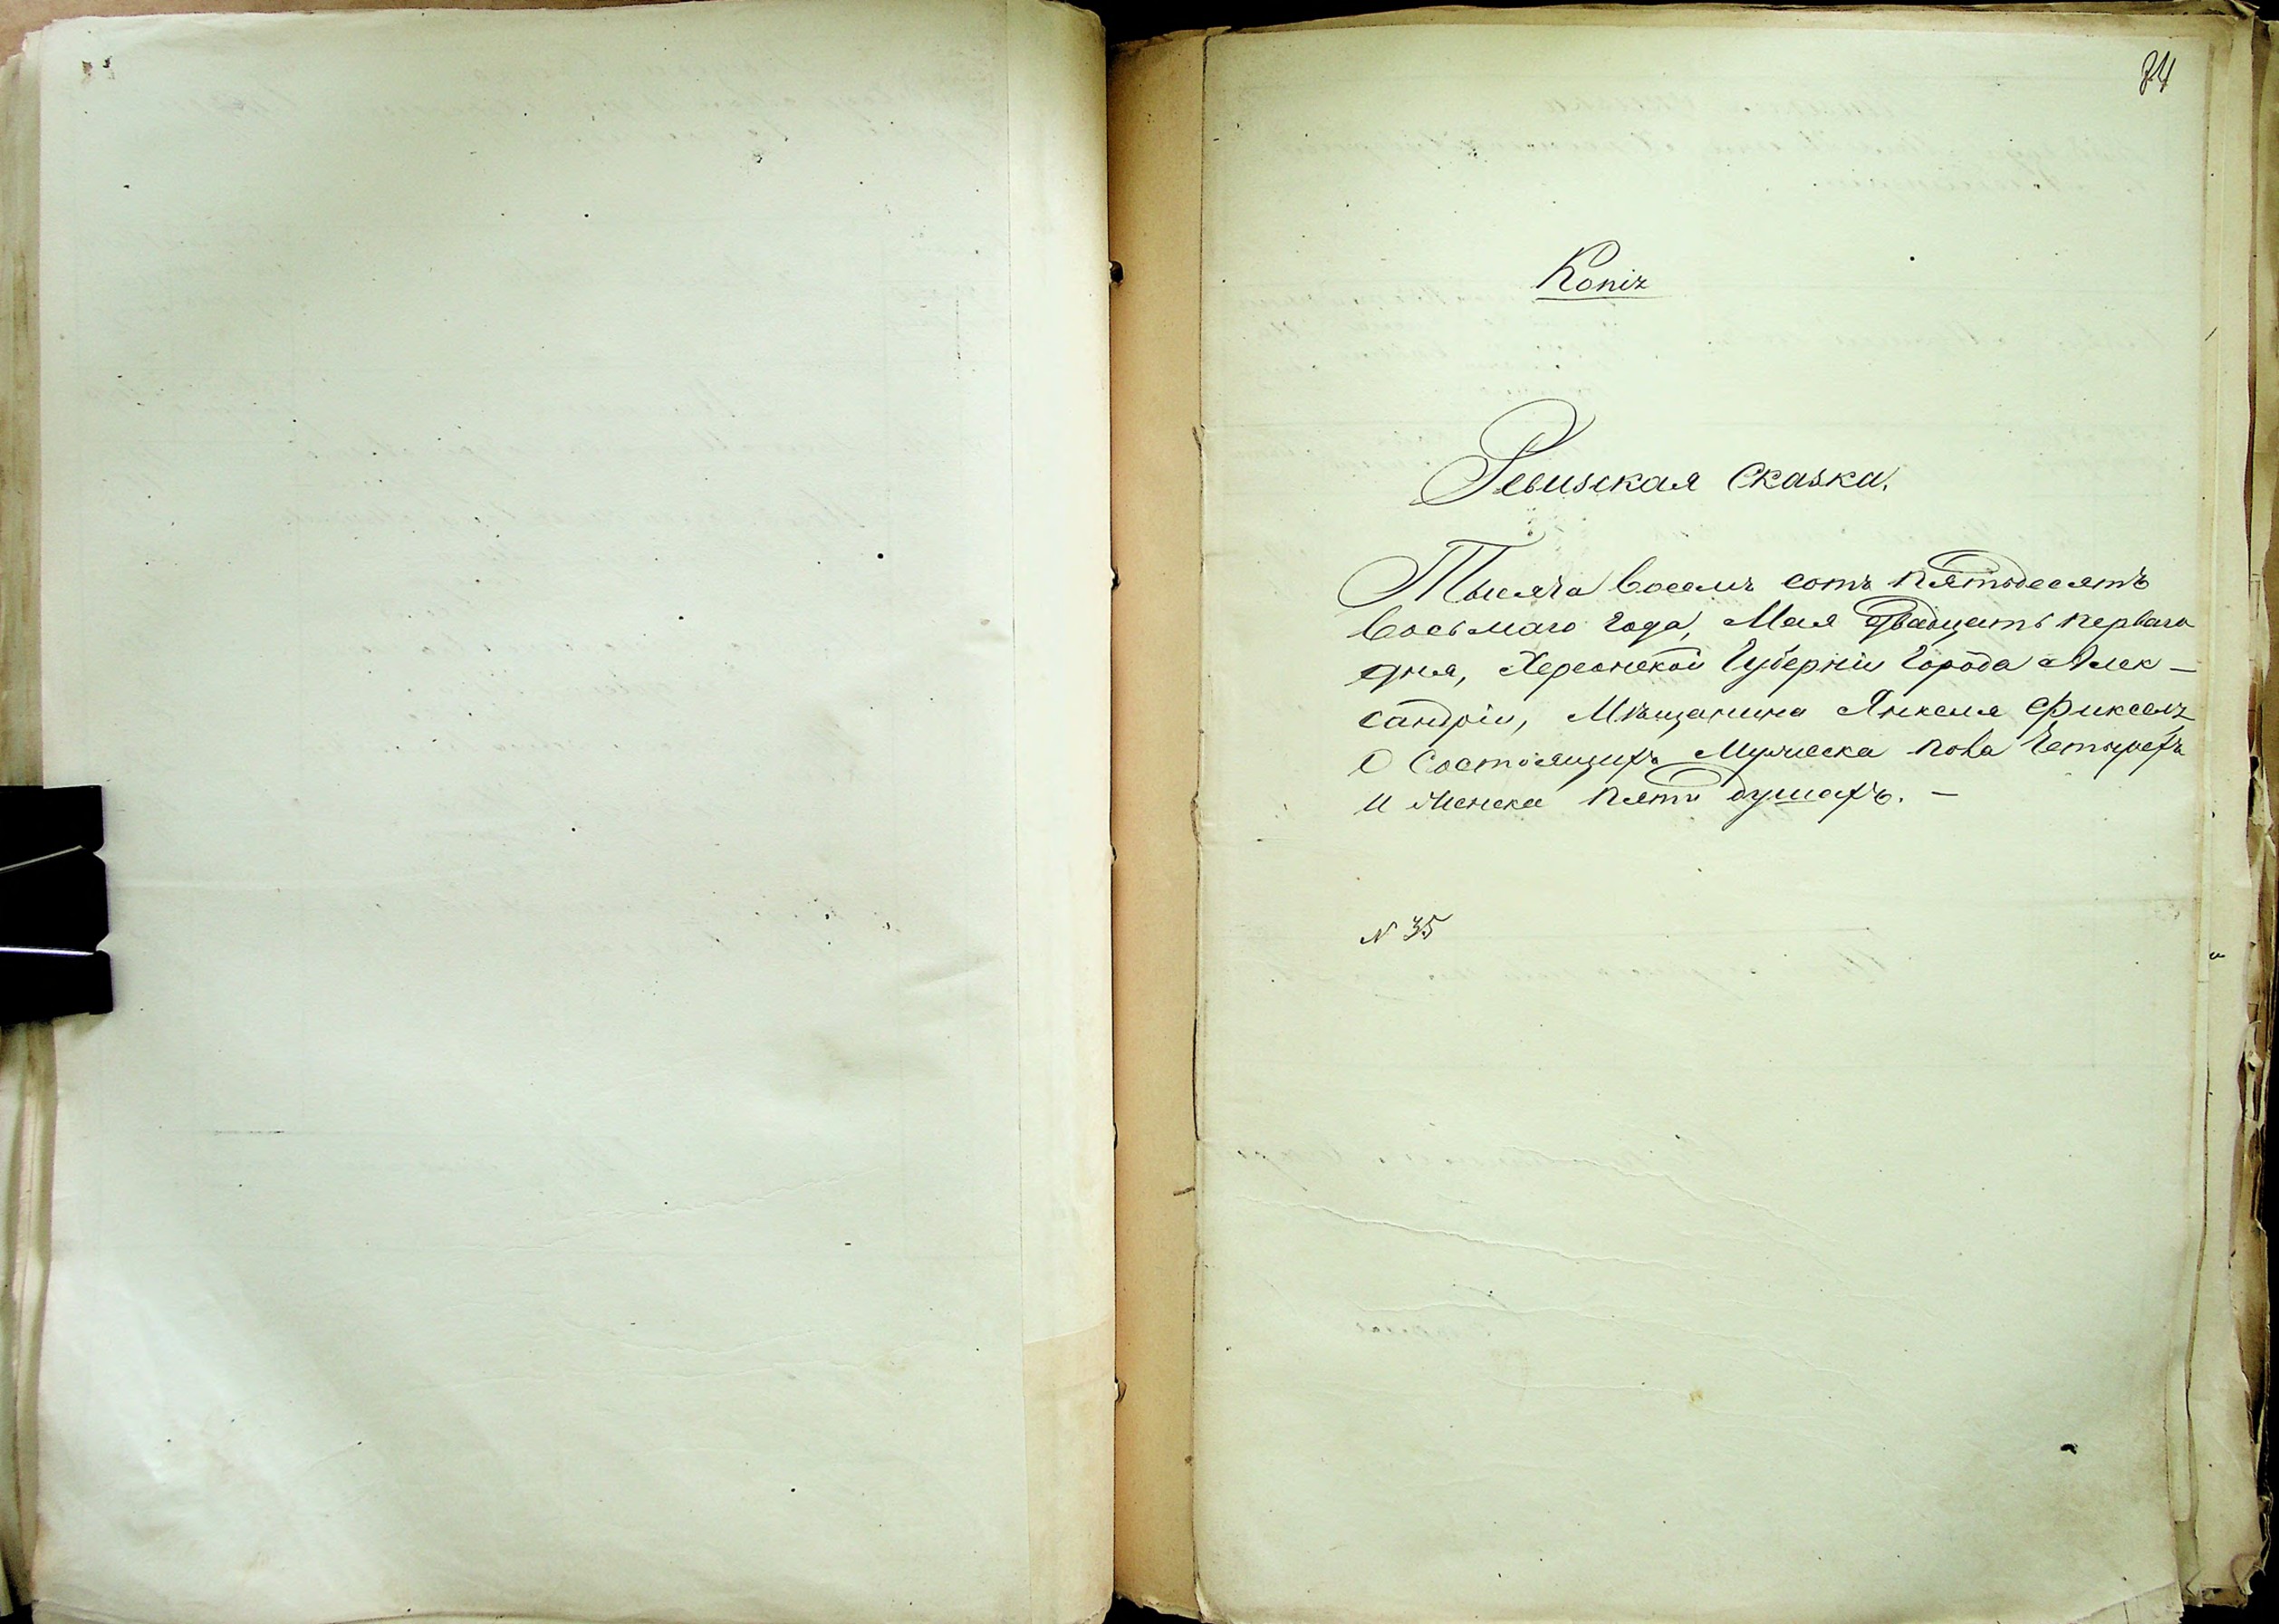 84
Копія
Ревизская Сказка.
Тысяча восемь сотъ пятьдесятъ
восьмаго года, Мая двадцать перваго
дня, Херсонской Губерніи Города Алек-
сандріи, Мѣщанина Янкеля Фиксель
О Состоящихъ Мужеска пола Четырехъ
и Женска пяти душахъ. —
N 35